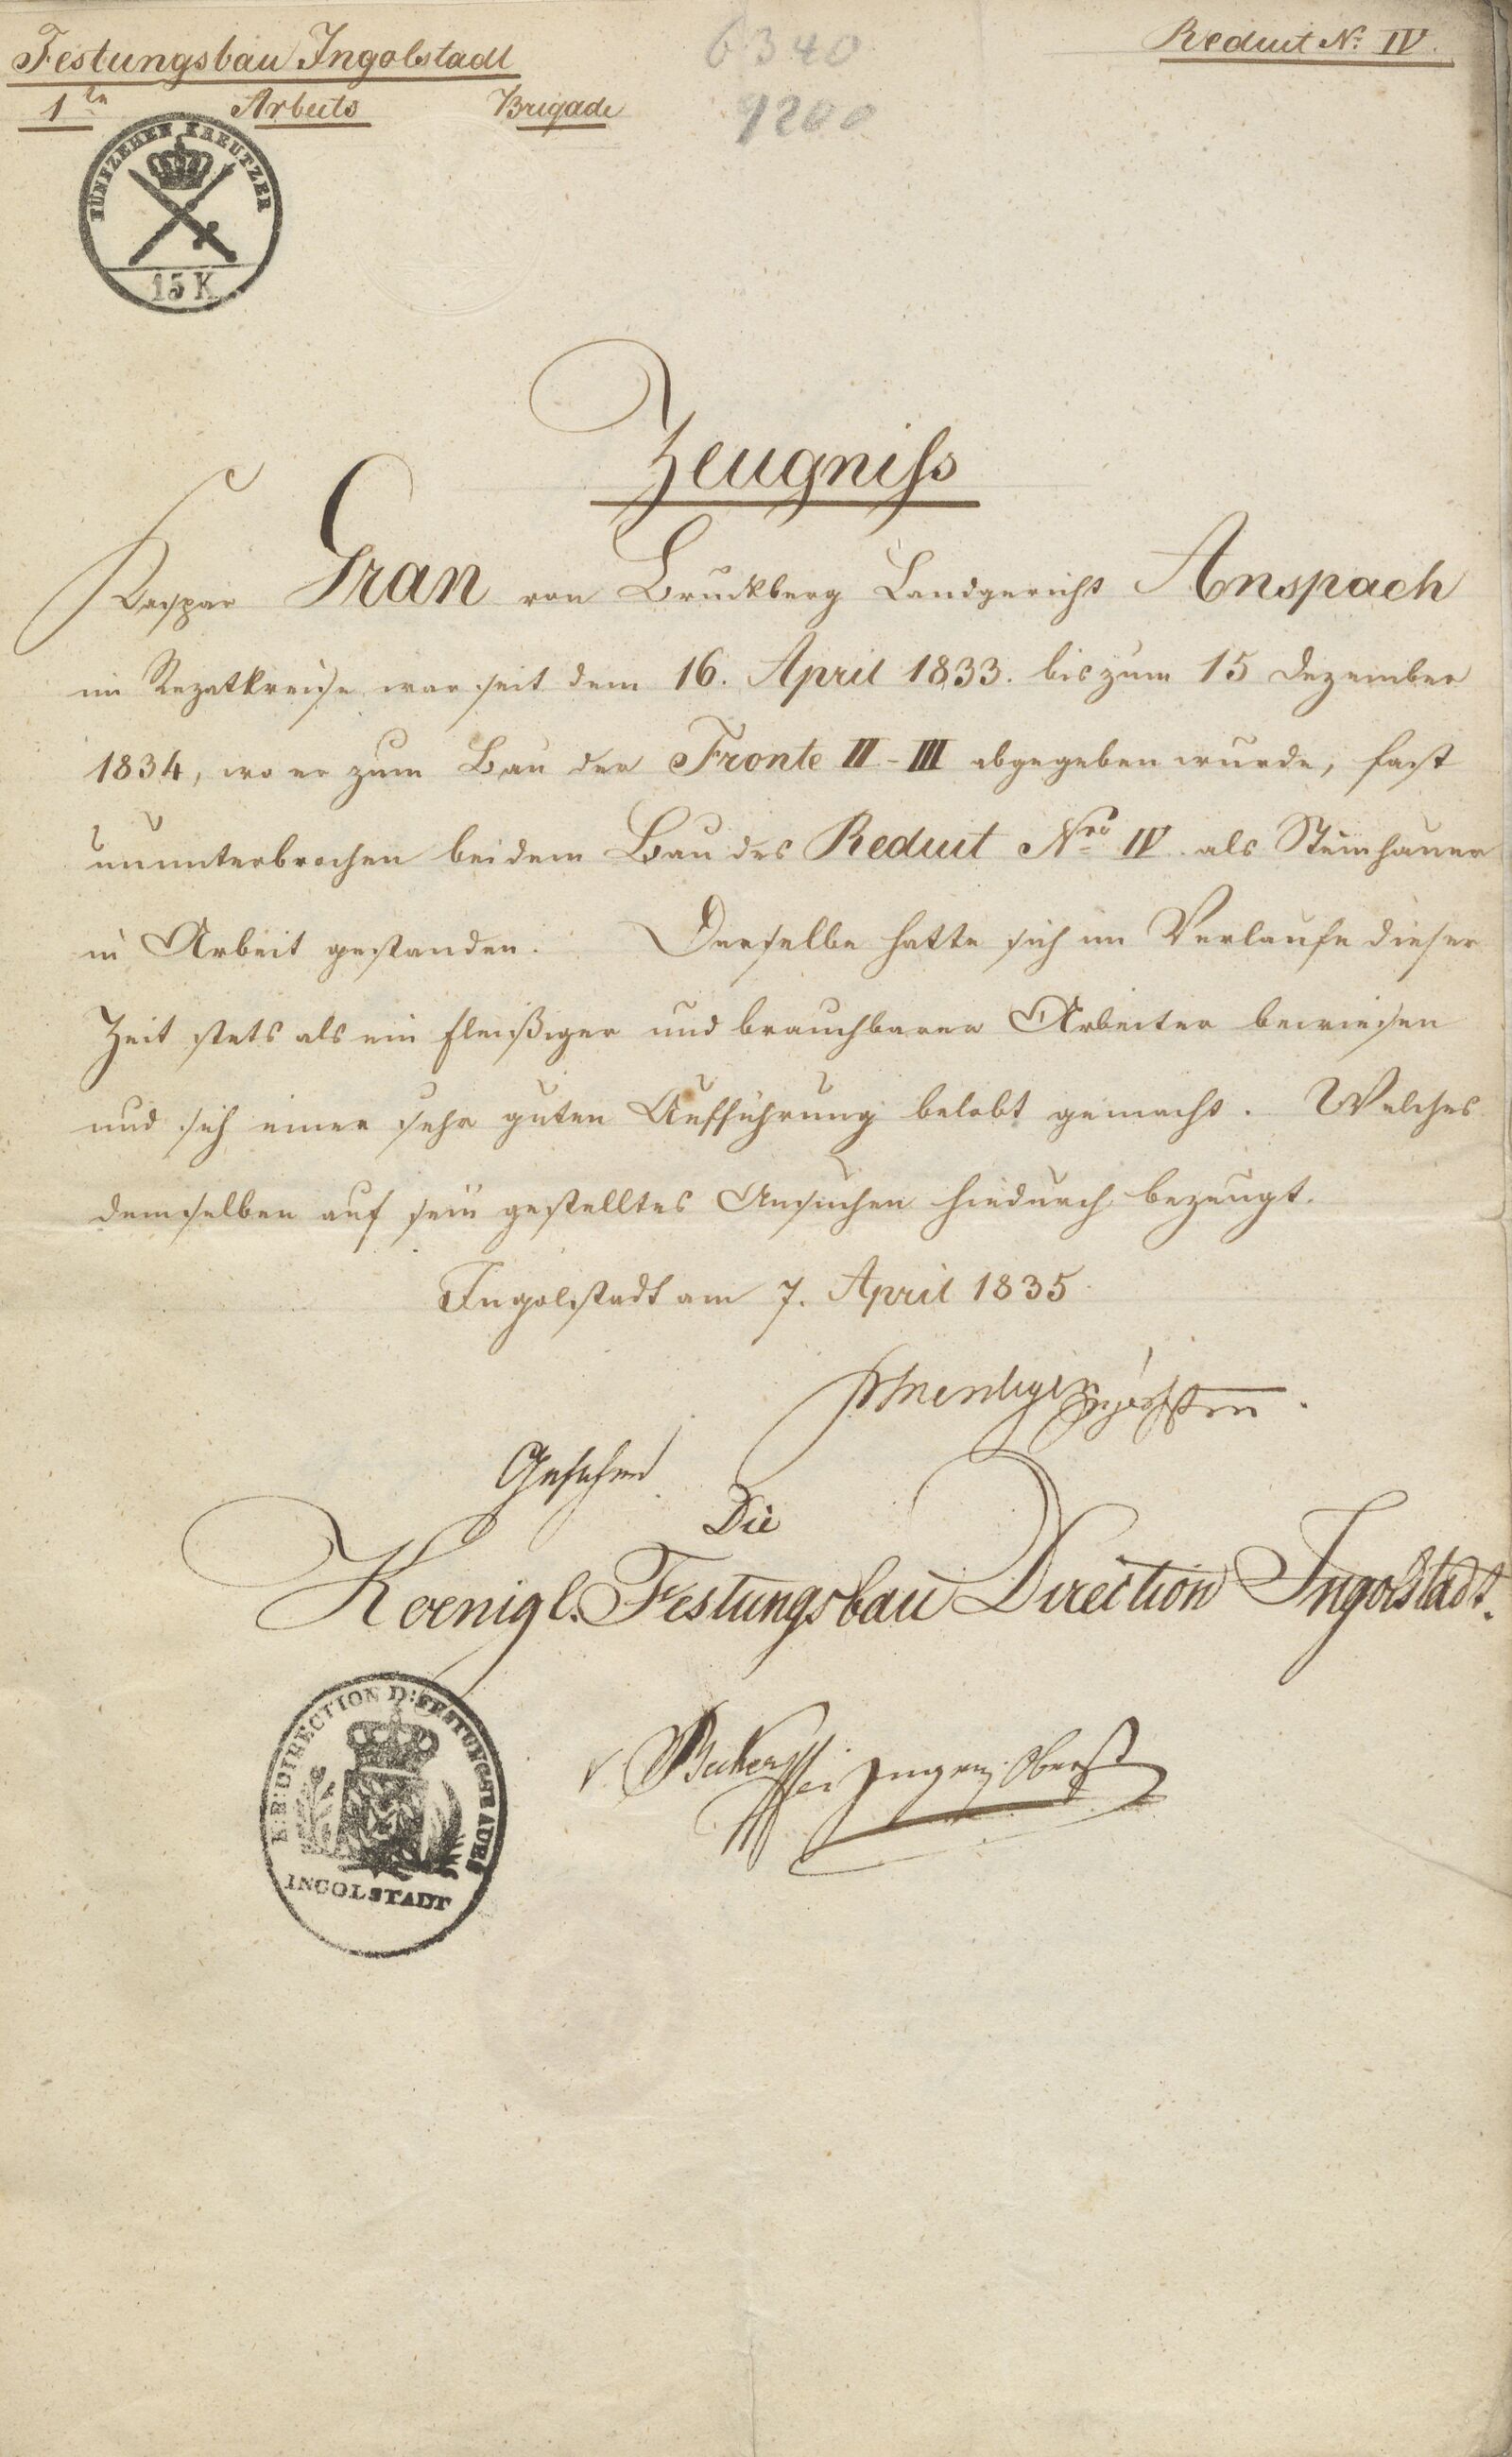 Festungsbau Ingolstadt
Reduit No. IV.
6340
9200
1te Arbeits Brigade
FÜNFZEHEN KREUTZER
15 K
Zeugniſs
Kaspar Gran von Bruckberg Landgericht Anspach
im Rezatkreise war seit dem 16. April 1833. bis zum 15 Dezember
1834, wo er zum Bau der Fronte II-III abgegeben wurde, fast
ununterbrochen bei dem Bau des Reduit Nro IV. als Steinhauer
in Arbeit gestanden. Derselbe hatte sich im Verlaufe dieser
Zeit stets als ein fleißiger und brauchbarer Arbeiter bewiesen
und sich einer sehr guten Aufführung belobt gemacht. Welches
demselben auf sein gestelltes Ansuchen hiedurch bezeugt.
Ingolstadt am 7. April 1835.
Gesehen
Die
Koenigl. Festungsbau Direction Ingolstadt.
K:B: DIRECTION D: FESTUNGSBAUES
INGOLSTADT
v. Becker Ingen: Oberst